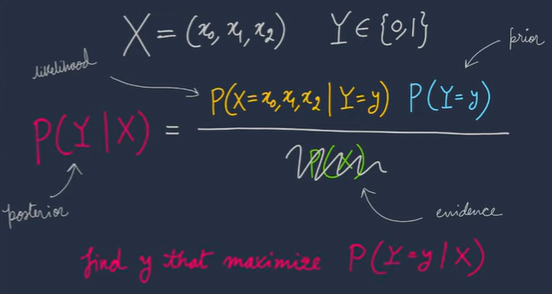 X = (x₀, x₁, x₂)  Y ∈ {0,1}
prior
likelihood
P(X=x₀,x₁,x₂ | Y=y) P(Y=y)
P(Y|X) =
P(X)
posterior
evidence
find y that maximize P(Y=y|X)